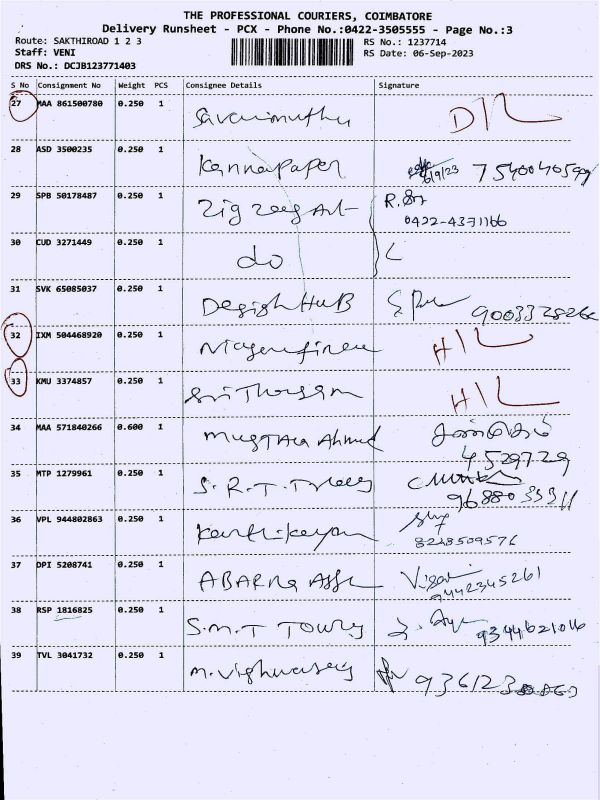 THE PROFESSIONAL COURIERS, COIMBATORE
Delivery Runsheet - PCX - Phone No.:0422-3505555 - Page No.:3
Route: SAKTHIROAD 1 2 3 RS No.: 1237714
Staff: VENI RS Date: 06-Sep-2023
DRS No.: DCJB123771403
S No Consignment No Weight PCS Consignee Details Signature
27 MAA 861500780 0.250 1 Savarimuthu D/L
28 ASD 3500235 0.250 1 Kannapaper 6/9/23 7540040599
29 SPB 50178487 0.250 1 Zig Zag Art R.
0422-4371166
30 CUD 3271449 0.250 1 do
31 SVK 65085037 0.250 1 Design HuB
32 IXM 504468920 0.250 1 H/L
33 KMU 3374857 0.250 1 H/L
34 MAA 571840266 0.600 1 Mustafa Ahmed
35 MTP 1279961 0.250 1 S.R.T.
36 VPL 944802863 0.250 1 Karthikeyan
8248509576
37 DPI 5208741 0.250 1 ABARNA
9442345261
38 RSP 1816825 0.250 1 S.M.T Tours 9344621016
39 TVL 3041732 0.250 1 M.